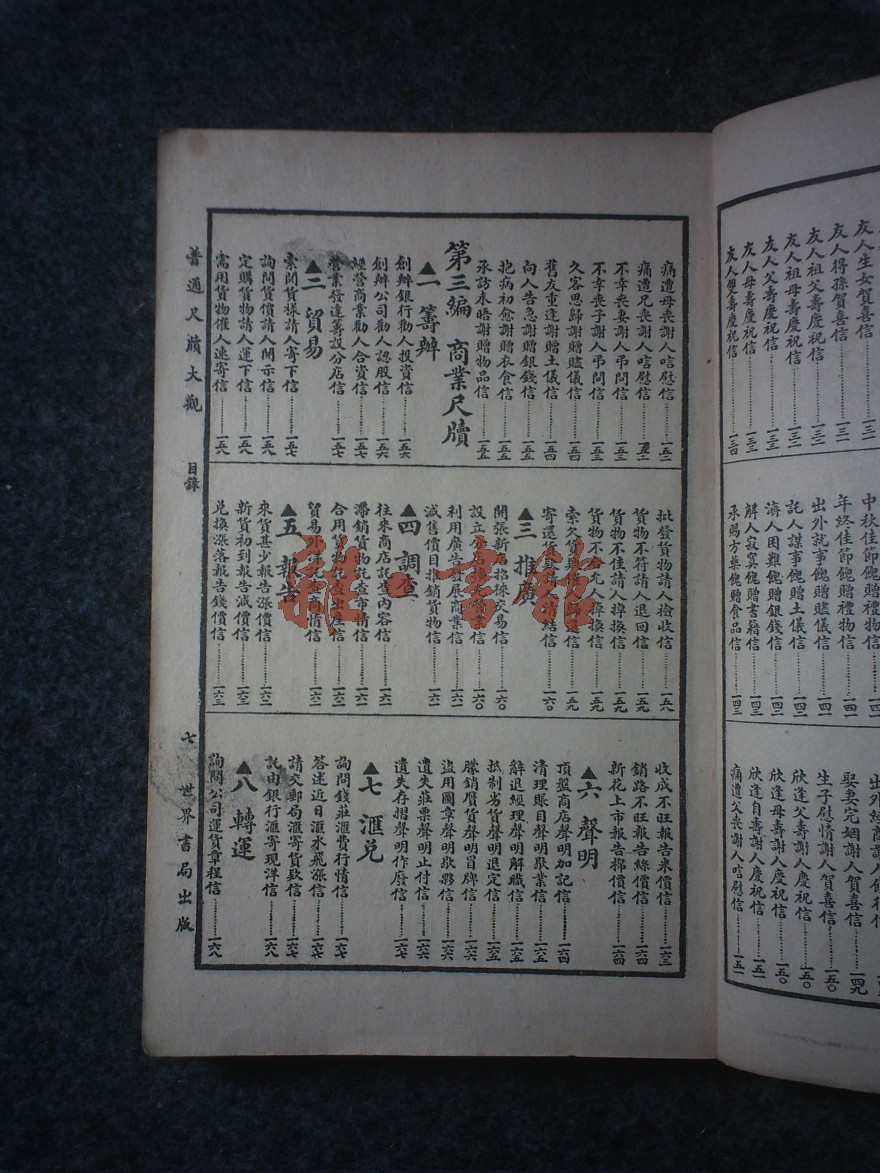 友人生女賀喜信
友人得孫賀喜信……一三二
友人祖父壽慶祝信……一三二
友人祖母壽慶祝信……一三二
友人父壽慶祝信……一三三
友人母壽慶祝信……一三三
友人雙壽慶祝信……一三四
中秋佳節餽贈禮物信……一四一
年終佳節餽贈禮物信……一四一
出外就事餽贈贐儀信……一四二
託人謀事餽贈土儀信……一四二
濟人困難餽贈銀錢信……一四二
解人寂寞餽贈書籍信……一四三
承賜方藥餽贈食品信……一四三
娶妻完姻謝人賀喜信……一四九
生子慰情謝人賀喜信……一五〇
欣逢父壽謝人慶祝信……一五〇
欣逢母壽謝人慶祝信……一五〇
欣逢自壽謝人慶祝信……一五一
痛遭父喪謝人唁慰信……一五一
痛遭母喪謝人唁慰信……一五二
痛遭兄喪謝人唁慰信……一五二
不幸喪妻謝人弔問信……一五三
不幸喪子謝人弔問信……一五三
久客思歸謝贈贐儀信……一五四
舊友重逢謝贈土儀信……一五四
向人告急謝贈銀錢信……一五四
抱病初愈謝贈衣食信……一五五
承訪未晤謝贈物品信……一五五
第三編 商業尺牘
▲一 籌辦
創辦銀行勸人投資信……一五六
創辦公司勸人認股信……一五六
經營商業勸人合資信……一五七
營業發達籌設分店信……一五七
▲二 貿易
索閱貨樣請人寄下信……一五七
詢問貨價請人開示信……一五八
定購貨物請人運下信……一五八
需用貨物催人速寄信……一五八
批發貨物請人檢收信……一五八
貨物不符請人退回信……一五九
貨物不佳請人掉換信……一五九
貨物不合允人掉換信……一五九
▲三 推廣
開張新店招徠交易信……一六〇
利用廣告發展商業信……一六一
減售價目推銷貨物信……一六一
▲四 調查
往來商店託查內容信……一六一
▲五 報告
來貨甚少報告漲價信……一六二
新貨初到報告減價信……一六二
兌換漲落報告錢價信……一六三
收成不旺報告米價信……一六三
銷路不旺報告絲價信……一六四
新花上市報告棉價信……一六四
▲六 聲明
頂盤商店聲明加記信……一六四
清理賬目聲明歇業信……一六五
辭退經理聲明解職信……一六五
抵制劣貨聲明退定信……一六五
朦銷贗貨聲明冒牌信……一六六
盜用圖章聲明歇夥信……一六六
遺失莊票聲明止付信……一六六
遺失存摺聲明作廢信……一六七
▲七 滙兌
詢問錢莊滙費行情信……一六七
答述近日滙水飛漲信……一六七
請交郵局滙寄貨款信……一六七
託由銀行滙寄現洋信……一六八
▲八 轉運
詢問公司運貨章程信……一六八
普通尺牘大觀 目錄 七 世界書局出版